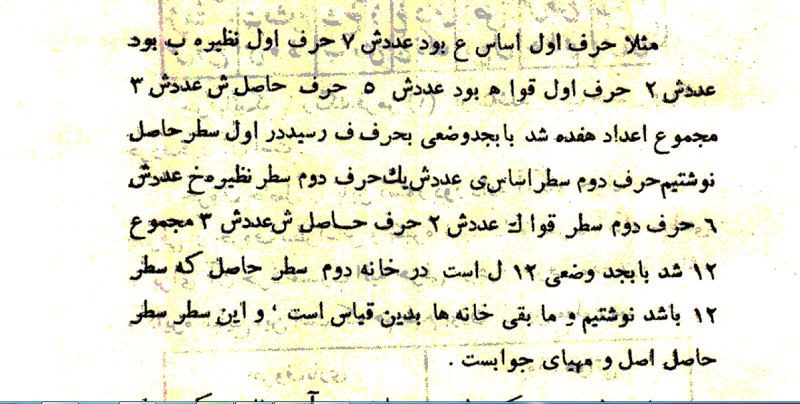 مثلا حرف اول اساس ع بود عددش ۷ حرف اول نظیره ب بود
عددش ۲ حرف اول قوا ه بود عددش ۵ حرف حاصل ش عددش ۳
مجموع اعداد هفده شد بابجد وضعی بحرف ف رسید در اول سطر حاصل
نوشتیم حرف دوم سطر اساس ی عددش یك حرف دوم سطر نظیره خ عددش
۶ حرف دوم سطر قوا ك عددش ۲ حرف حاصل ش عددش ۳ مجموع
۱۲ شد بابجد وضعی ۱۲ ل است در خانه دوم سطر حاصل که سطر
۱۲ باشد نوشتیم و ما بقی خانه ها بدین قیاس است ، و این سطر سطر
حاصل اصل و مهیای جوابست .